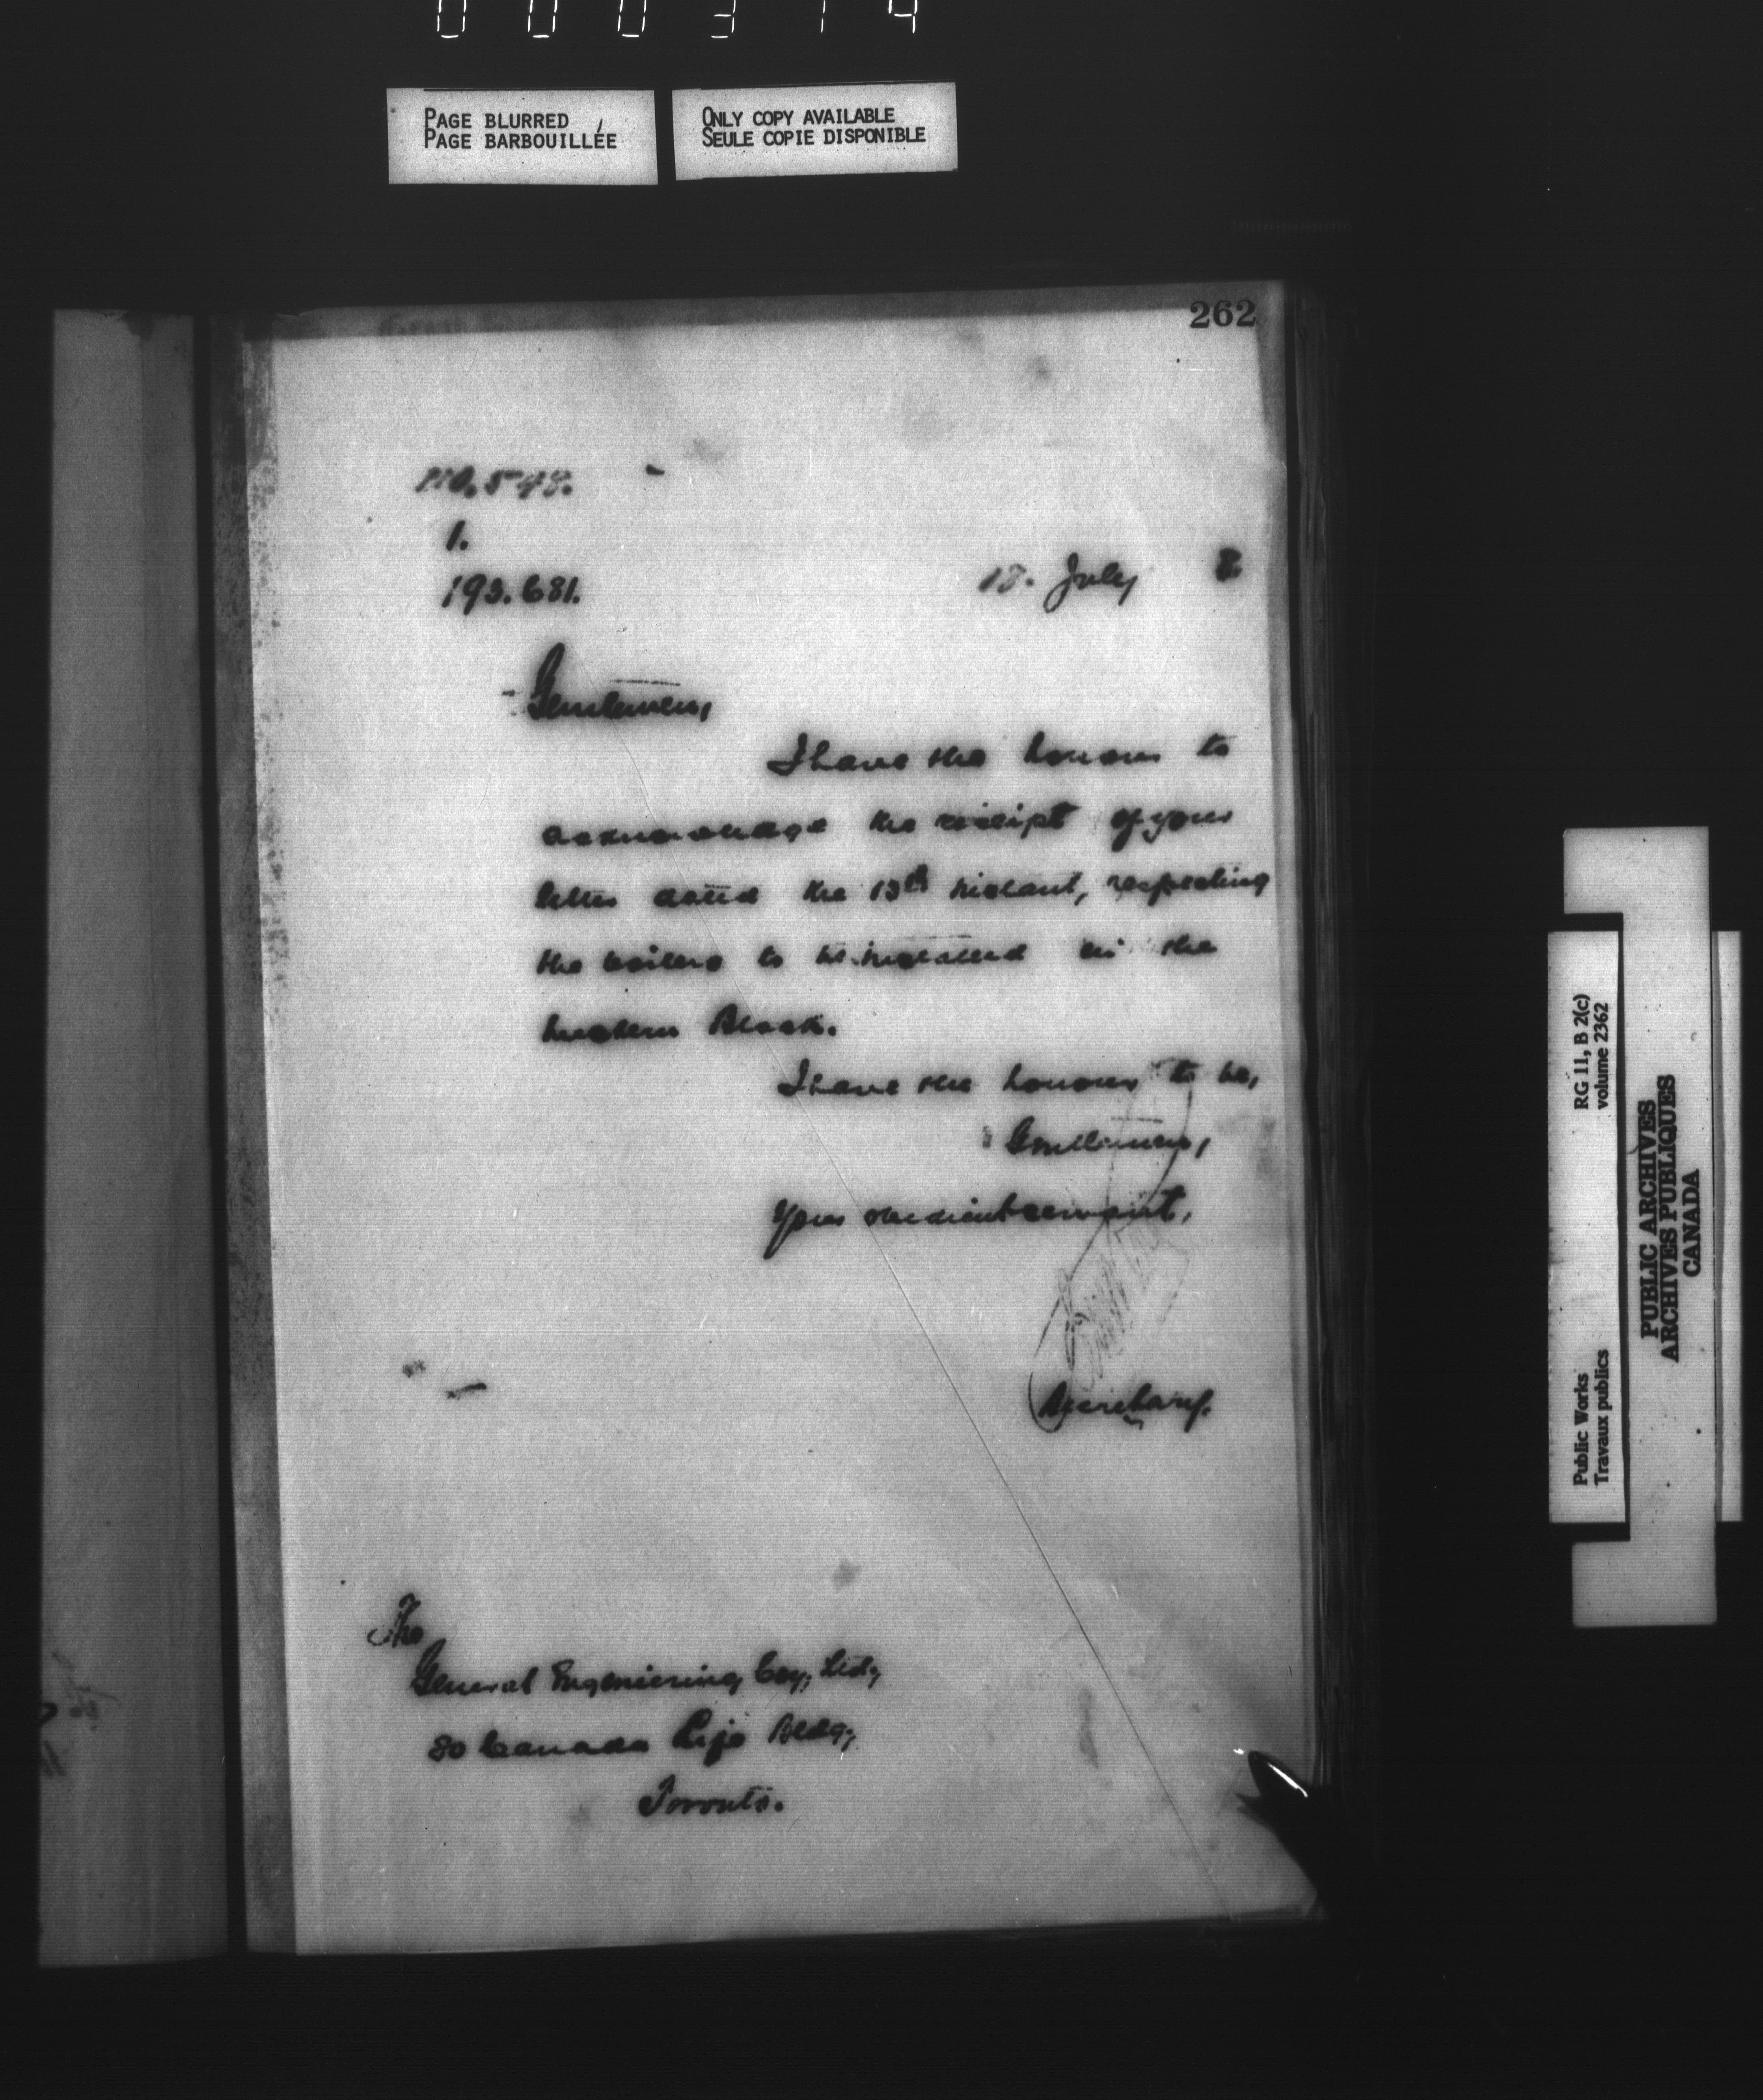 000314
PAGE BLURRED
PAGE BARBOUILLÉE
ONLY COPY AVAILABLE
SEULE COPIE DISPONIBLE
262
No. 548.
1.
193.681.
18. July 8
Gentlemen,
I have the honour to
acknowledge the receipt of your
letter dated the 13th instant, respecting
the boilers to be installed in the
Western Block.
I have the honour to be,
Gentlemen,
Your obedient servant,
Secretary.
The
General Engineering Coy, Ltd,
80 Canada Life Bldg,
Toronto.
RG 11, B 2(c)
volume 2362
Public Works
Travaux publics
PUBLIC ARCHIVES
ARCHIVES PUBLIQUES
CANADA